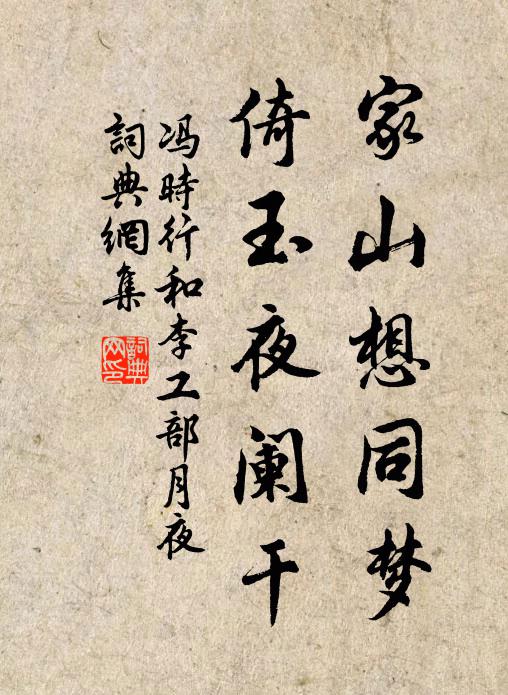 家山想同梦
倚玉夜阑干
冯時行和李工部月夜
詞典網集
詞典网印